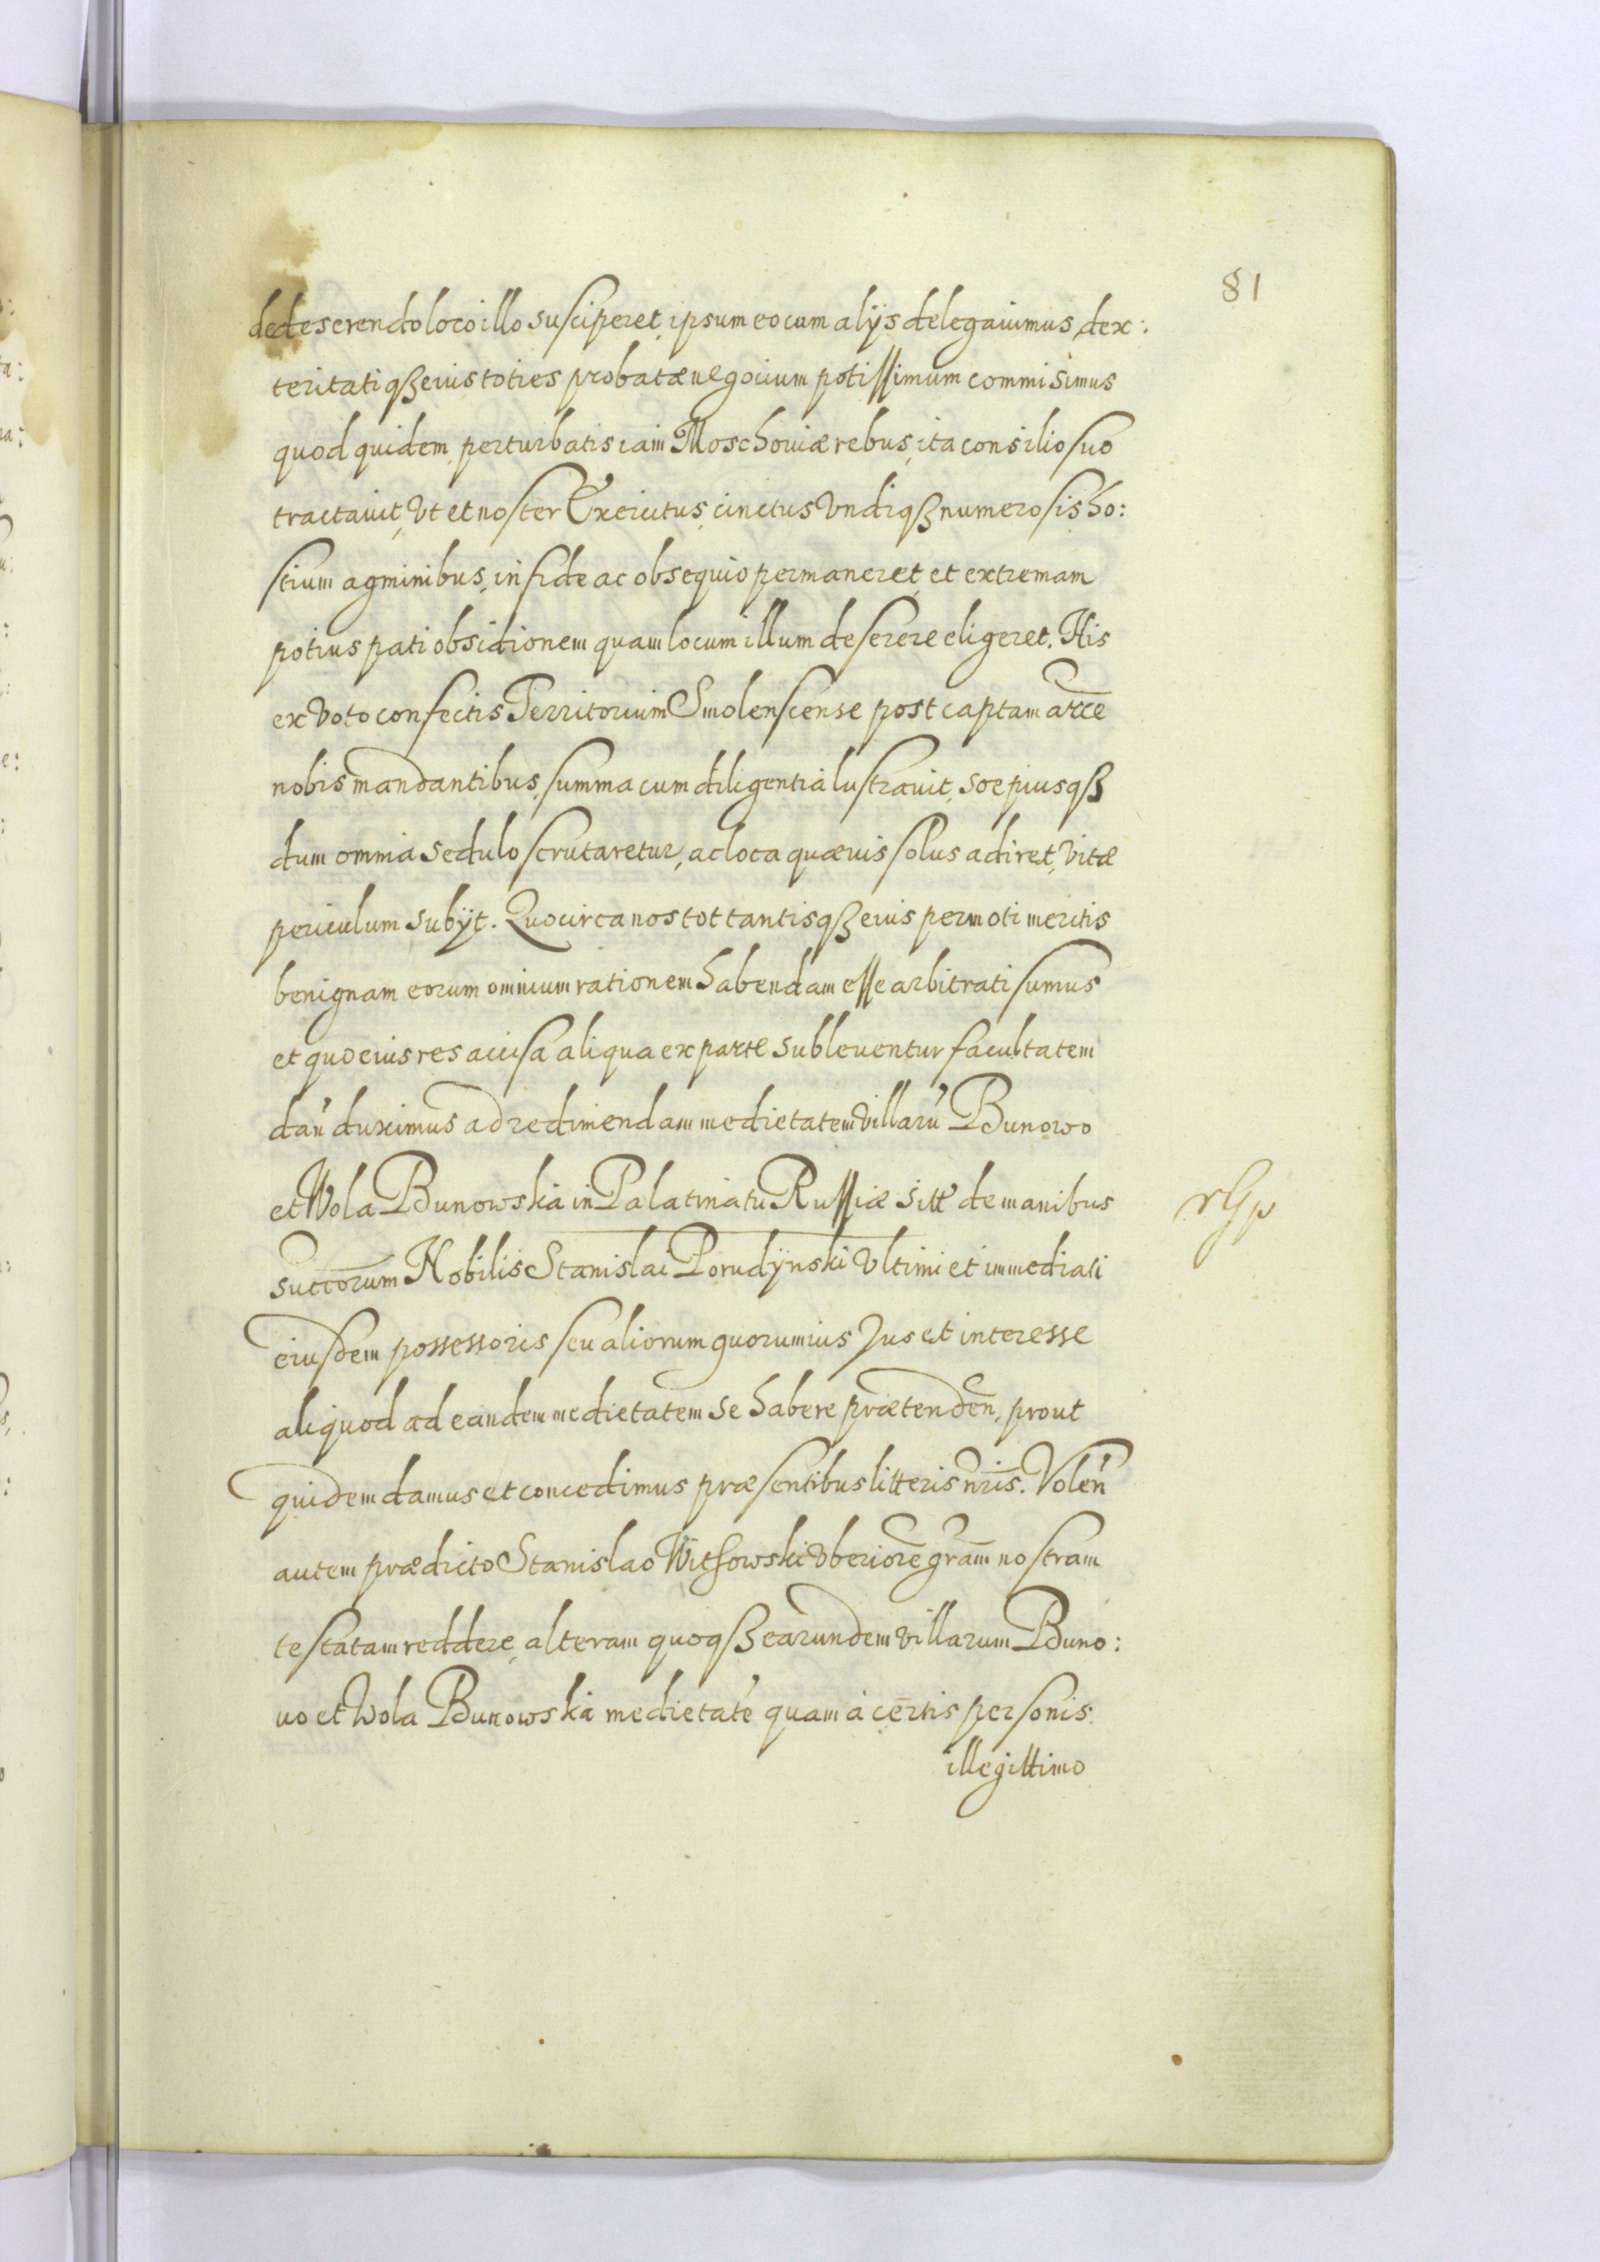 81
de deserendo loco illo susciperet, ipsum eo cum alijs delegauimus, dex:
teritatiqß eius toties probatæ negocium potissimum commisimus
quod quidem, perturbatis iam Moschouiæ rebus, ita consilio suo
tractauit, Vt et noster Exercitus, cinctus Vndiqß numerosis ho:
stium agminibus, in fide ac obsequio permaneret, et extremam
potius pati obsidionem quam locum illum deserere eligeret. His
ex Voto confectis Territorium Smolenscense post captam arcē
nobis mandantibus, summa cum diligentia lustrauit, soepiusqß
dum omnia sedulo scrutaretur, ac loca quæuis solus adiret, vitæ
periculum subijt. Quocirca nos tot tantisqß eius permoti meritis
benignam eorum omnium rationem habendam esse arbitrati sumus
et quo eius res accisa aliqua ex parte subleuentur facultatem
dań duximus ad redimendam medietatem villarū Bunowo
et Wola Bunowska in Palatinatu Russiæ sitt de manibus
succorum Nobilis Stanislai Porudÿnski Vltimi et immediati
eiusdem possessoris seu aliorum quorumius Jus et interesse
aliquod ad eandem medietatem se habere prætendeń, prout
quidem damus et concedimus præsentibus litteris nrīs. Voleń
autem prædicto Stanislao Witkowski vberiorē grām nostram
testatam reddere, alteram quoqß earundem villarum Buno:
uo et Wola Bunowska medietatē quam à certis personis
illegittimo